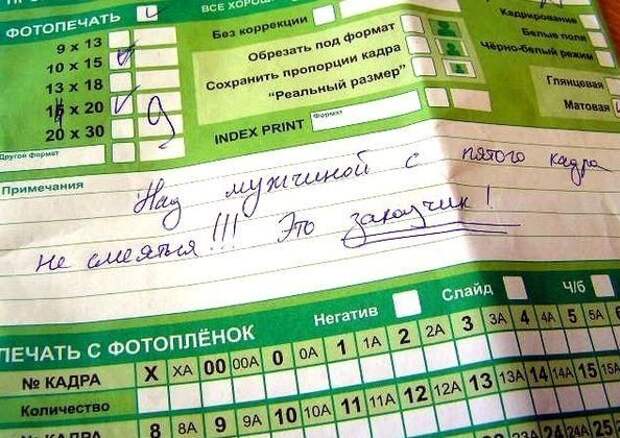 ВСЕ ХОРОШ
ФОТОПЕЧАТЬ
9 x 13
10 x 15
13 x 18
20
20 x 30
9
Другой формат
Без коррекции
Обрезать под формат
Сохранить пропорции кадра
"Реальный размер"
INDEX PRINT
Формат
Кадрирование
Белые поля
Чёрно-белый режим
Глянцевая
Матовая
Примечания
Над мужчиной с пятого кадра
не смеяться!!! Это заказчик!
Негатив
Слайд
Ч/б
ПЕЧАТЬ С ФОТОПЛЁНОК
№ КАДРА X XA 00 00A 0 0A 1 1A 2 2A 3 3A 4 4A 5 5A 6
Количество
№ КАДРА 8 8A 9 9A 10 10A 11 11A 12 12A 13 13A 14 14A 15 15A
24 24A 25